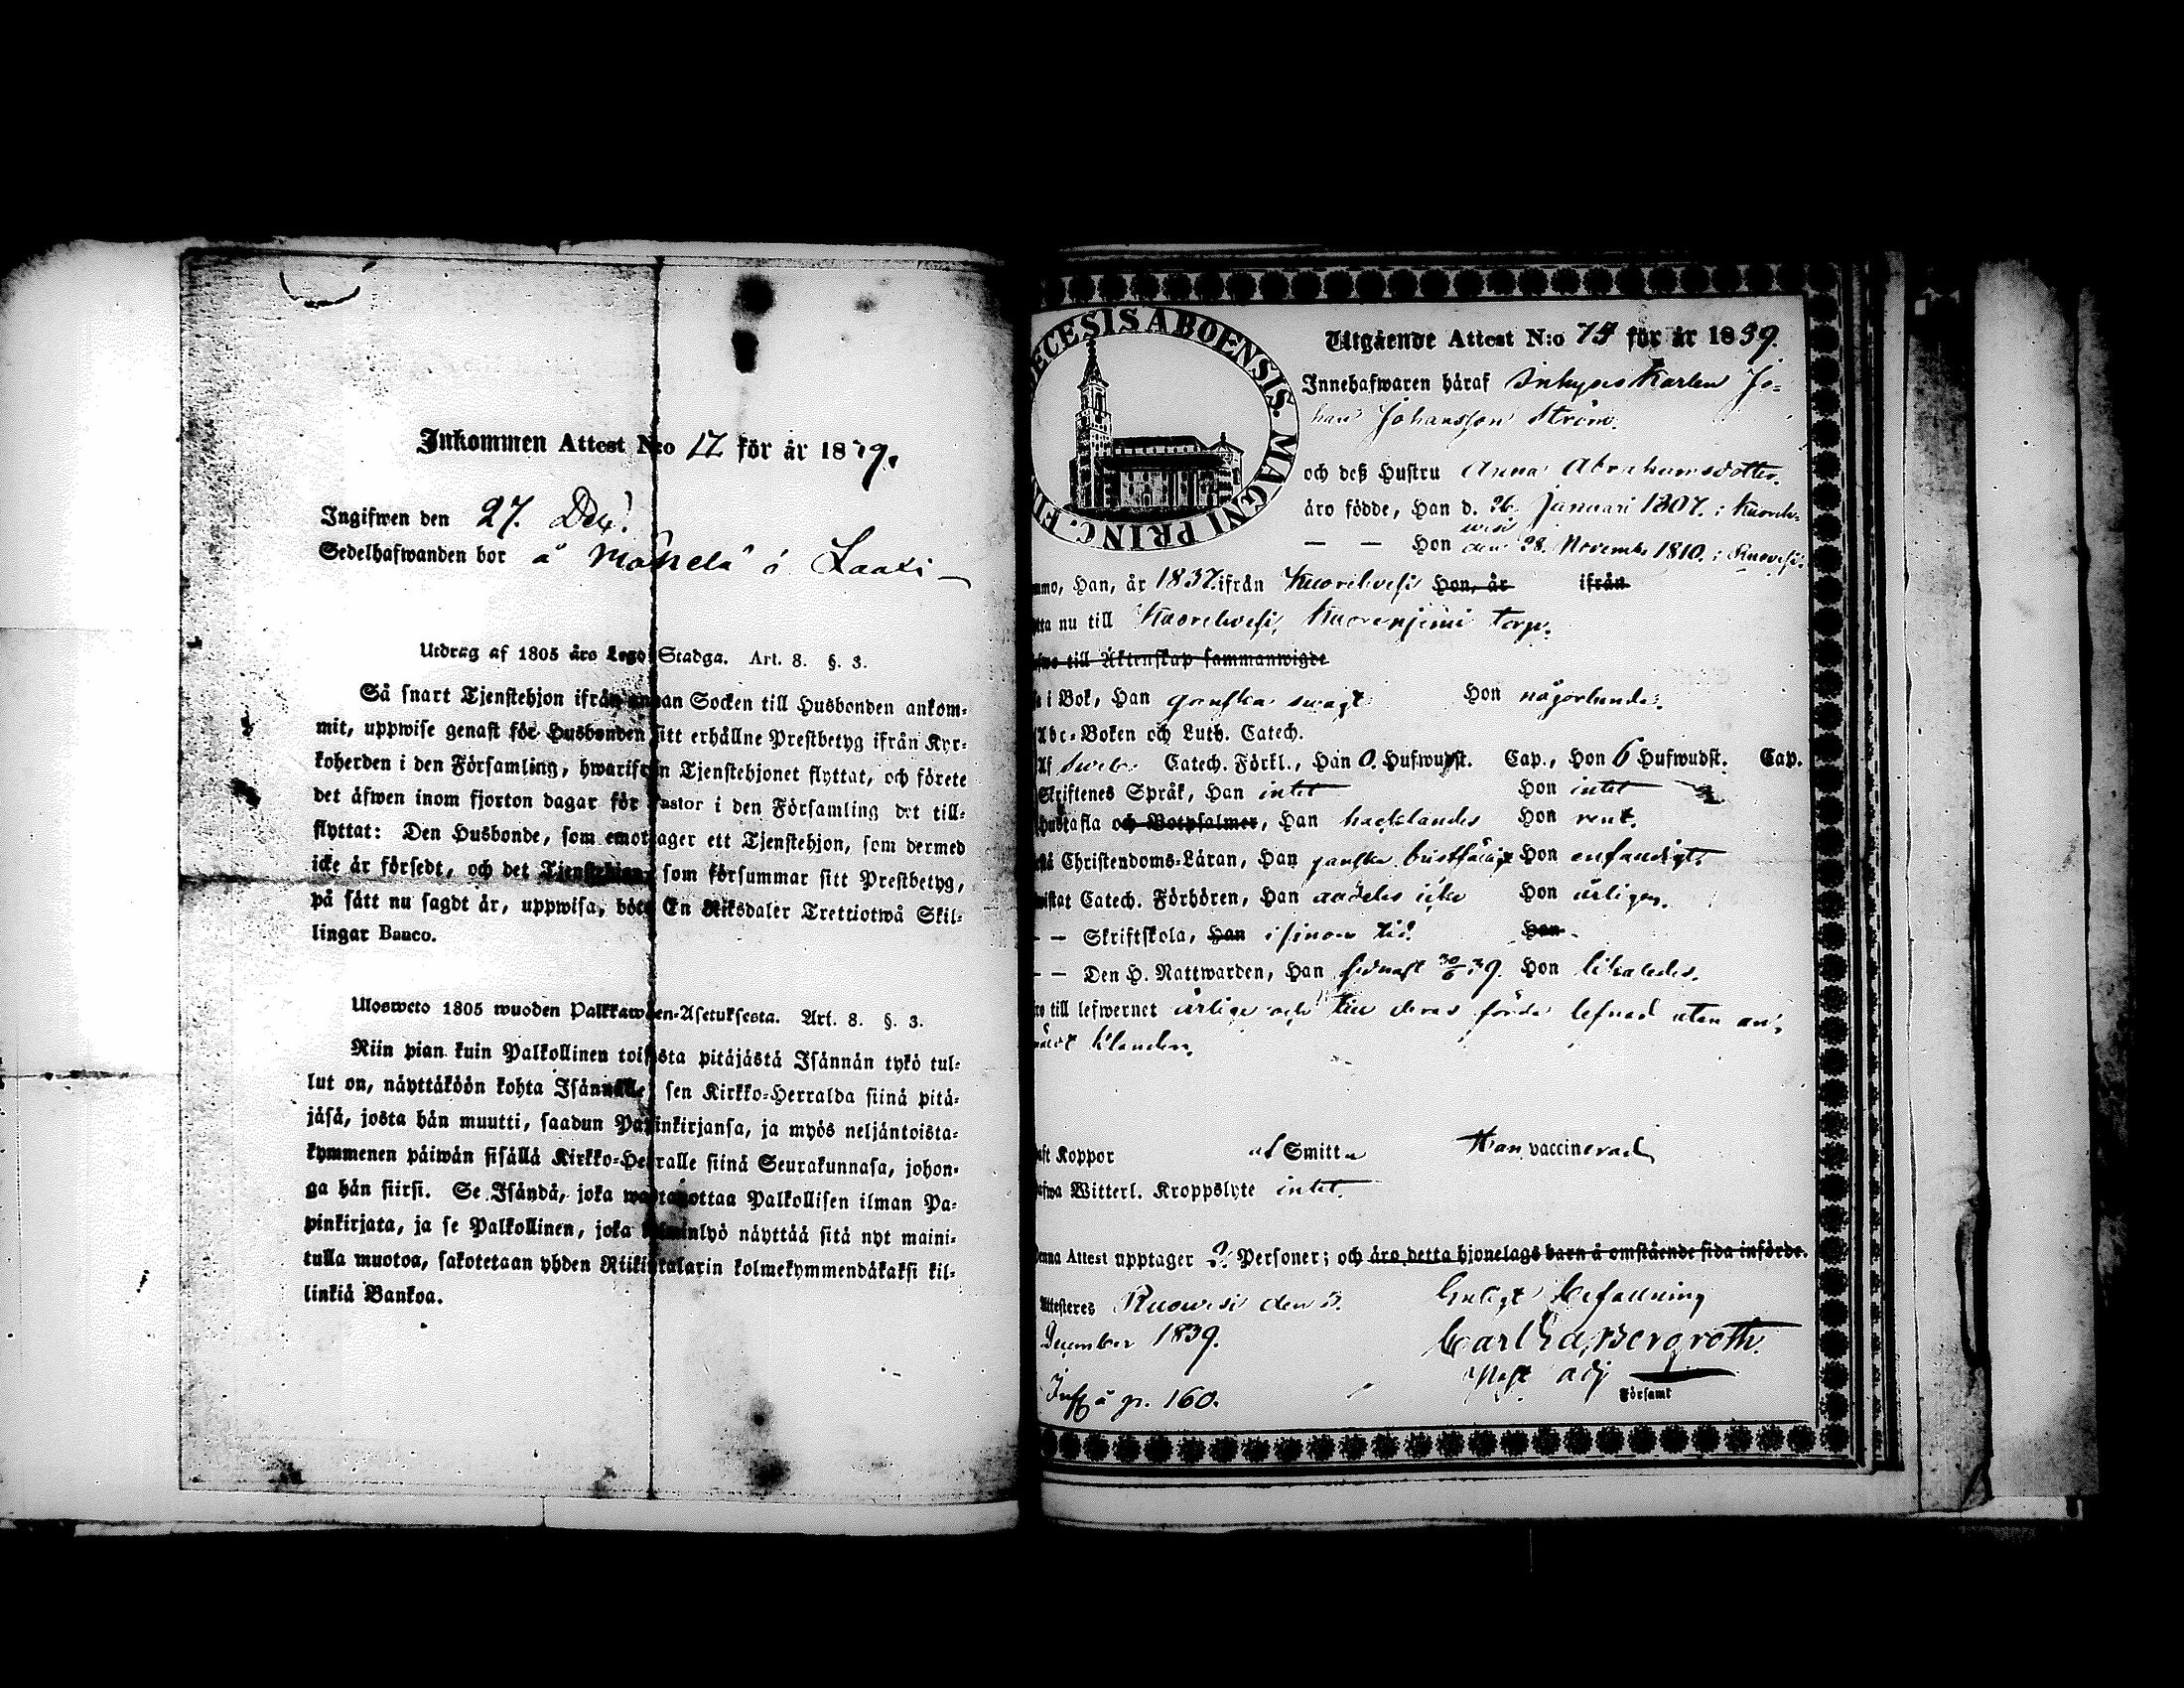 Inkommen Attest N:o 17 för år 1839.
Ingifwen den 27. Dec.
Sedelhafwanden bor å
Utdrag af 1805 års Lego Stadga. Art. 8. §. 3.
Så snart Tjenstehjon ifrån annan Socken till Husbonden ankom-
mit, uppwise genast för Husbonden sitt erhållne Prestbetyg ifrån Kyr-
koherden i den Församling, hwarifrån Tjenstehjonet flyttat, och förete
det äfwen inom fjorton dagar för Pastor i den Församling det till-
flyttat: Den Husbonde, som emottager ett Tjenstehjon, som dermed
icke är försedt, och det Tjenstehjon, som försummar sitt Prestbetyg,
på sätt nu sagdt är, uppwisa, böte En Riksdaler Trettiotwå Skil-
lingar Banco.
Ulosweto 1805 wuoden Palkkawäen-Asetuksesta. Art. 8. §. 3.
Niin pian kuin Palkollinen toisesta pitäjästä Isännän tykö tul-
lut on, näyttäköön kohta Isännälle sen Kirkko-Herralda siinä pitä-
jäsä, josta hän muutti, saadun Papinkirjansa, ja myös neljäntoista-
kymmenen päiwän sisällä Kirkko-Herralle siinä Seurakunnasa, johon-
ga hän siirsi. Se Isändä, joka wastaanottaa Palkollisen ilman Pa-
pinkirjata, ja se Palkollinen, joka laiminlyö näyttää sitä nyt maini-
tulla muotoa, sakotetaan yhden Riikintalarin kolmekymmendäkaksi kil-
linkiä Bankoa.
ECESIS ABOENSIS. MAGNI PRINC. FIN
Utgående Attest N:o för år 1839.
Innehafwaren häraf Inhyses Karlen Jo-
han Johansson Ström.
och deß Hustru Anna Abrahamsdotter.
äro födde, Han d. 26. Januari 1807. i Kuoreh-
wesi
— — Hon den 28. Novembr 1810. i Ruovesi.
mmo, Han, år 1837. ifrån Kuorehvesi Hon, år ifrån
tta nu till Kuorehvesi, Kuorenjemi torp.
till Äktenskap sammanwigde
i Bok, Han ganska swagt Hon någorlunda.
Abc-Boken och Luth. Catech.
Af Catech. Förkl., Han 0. Hufwudst. Cap., Hon 6 Hufwudst. Cap.
Skriftenes Språk, Han intet Hon intet
Hustafla och Botpsalmer, Han hacklandes Hon rent.
Christendoms-Läran, Han ganska bristfällig Hon enfaldigt.
wistat Catech. Förhören, Han icke Hon årligen.
— — Skriftskola, Han i sinom tid. Hon
— — Den H. Nattwarden, Han sednast 30/6 39. Hon likaledes.
till lefwernet ärlige och hafwa deras förda lefnad utan an-
märkt klander.
haft Koppor af Smitta Han vaccinerad
hafwa Witterl. Kroppslyte intet.
Denna Attest upptager 2. Personer; och äro detta hjonelags barn å omstående sida införde.
Attesteres Ruowesi den 3. Enligt befallning
December 1839. Carl Ed. Bergroth.
Past adj
Församl
Inff å p. 160.